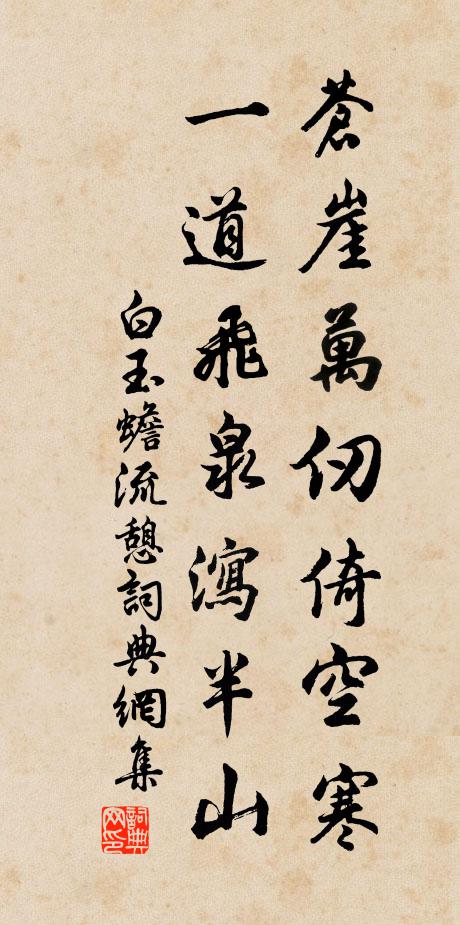 蒼崖萬仞倚空寒
一道飛泉瀉半山
白玉蟾流憩詞典網集
詞典
网印